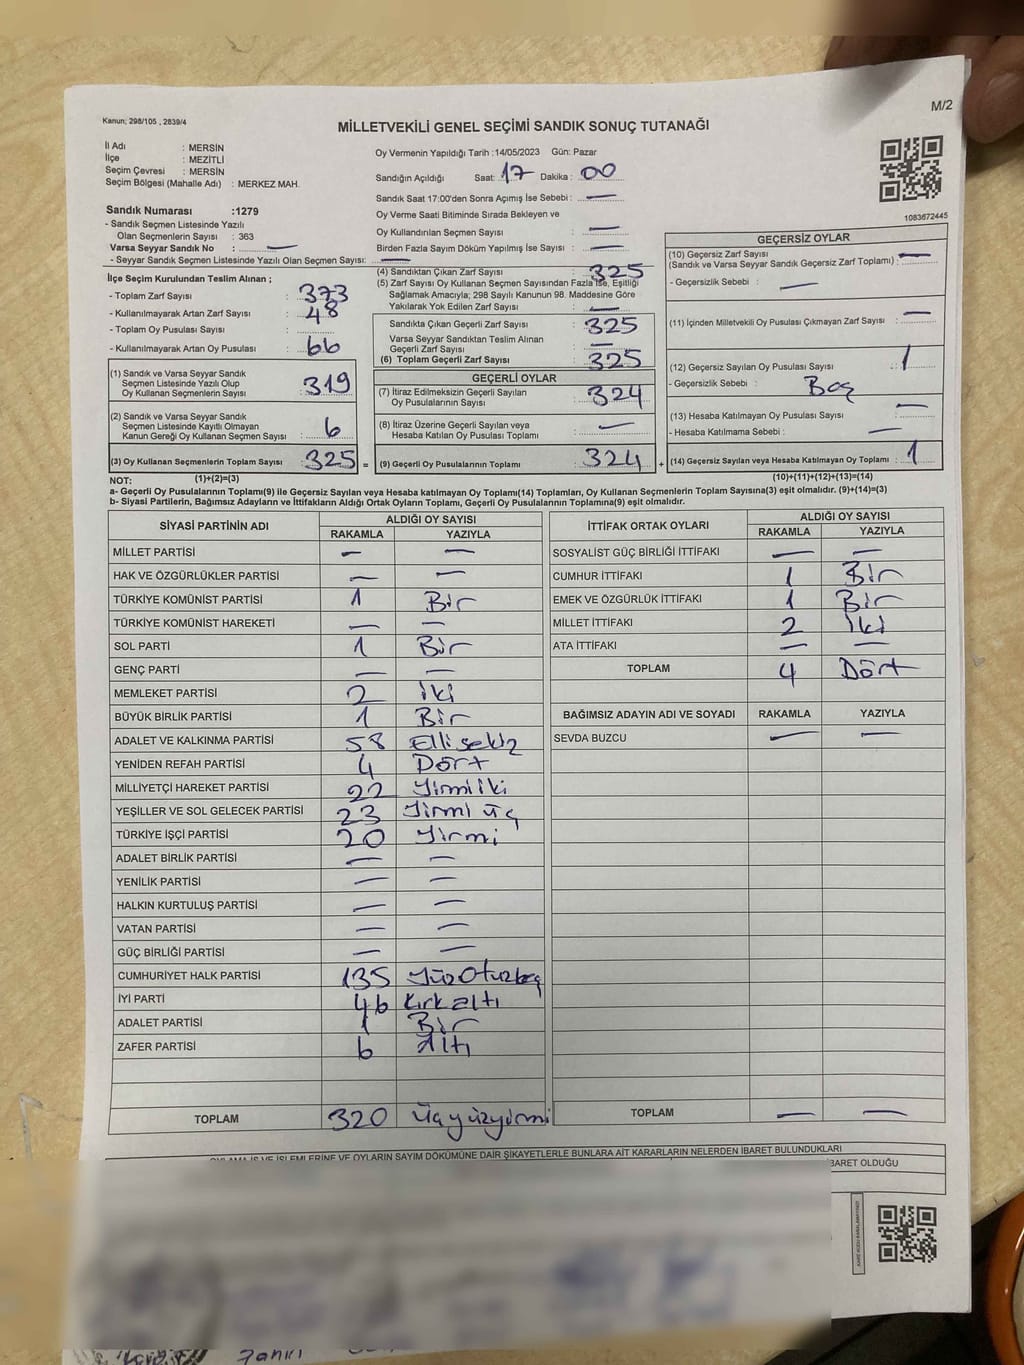 Kanun; 298/105 , 2839/4
M/2
MİLLETVEKİLİ GENEL SEÇİMİ SANDIK SONUÇ TUTANAĞI
İl Adı : MERSİN
İlçe : MEZİTLİ
Seçim Çevresi : MERSİN
Seçim Bölgesi (Mahalle Adı) : MERKEZ MAH.
Sandık Numarası :1279
- Sandık Seçmen Listesinde Yazılı
Olan Seçmenlerin Sayısı : 363
Varsa Seyyar Sandık No : —
- Seyyar Sandık Seçmen Listesinde Yazılı Olan Seçmen Sayısı: —
Oy Vermenin Yapıldığı Tarih :14/05/2023 Gün: Pazar
Sandığın Açıldığı Saat: 17 Dakika : 00
Sandık Saat 17:00'den Sonra Açımış İse Sebebi : —
Oy Verme Saati Bitiminde Sırada Bekleyen ve
Oy Kullandırılan Seçmen Sayısı : —
Birden Fazla Sayım Döküm Yapılmış İse Sayısı : —
1083672445
İlçe Seçim Kurulundan Teslim Alınan ;
- Toplam Zarf Sayısı : 373
- Kullanılmayarak Artan Zarf Sayısı : 48
- Toplam Oy Pusulası Sayısı :
- Kullanılmayarak Artan Oy Pusulası : 66
(1) Sandık ve Varsa Seyyar Sandık
Seçmen Listesinde Yazılı Olup
Oy Kullanan Seçmenlerin Sayısı : 319
(2) Sandık ve Varsa Seyyar Sandık
Seçmen Listesinde Kayıtlı Olmayan
Kanun Gereği Oy Kullanan Seçmen Sayısı : 6
(3) Oy Kullanan Seçmenlerin Toplam Sayısı : 325 =
(4) Sandıktan Çıkan Zarf Sayısı : 325
(5) Zarf Sayısı Oy Kullanan Seçmen Sayısından Fazla İse, Eşitliği
Sağlamak Amacıyla; 298 Sayılı Kanunun 98. Maddesine Göre
Yakılarak Yok Edilen Zarf Sayısı : —
Sandıkta Çıkan Geçerli Zarf Sayısı : 325
Varsa Seyyar Sandıktan Teslim Alınan
Geçerli Zarf Sayısı : —
(6) Toplam Geçerli Zarf Sayısı : 325
GEÇERLİ OYLAR
(7) İtiraz Edilmeksizin Geçerli Sayılan
Oy Pusulalarının Sayısı : 324
(8) İtiraz Üzerine Geçerli Sayılan veya
Hesaba Katılan Oy Pusulası Toplamı : —
(9) Geçerli Oy Pusulalarının Toplamı : 324 +
GEÇERSİZ OYLAR
(10) Geçersiz Zarf Sayısı
(Sandık ve Varsa Seyyar Sandık Geçersiz Zarf Toplamı) : —
- Geçersizlik Sebebi : —
(11) İçinden Milletvekili Oy Pusulası Çıkmayan Zarf Sayısı : —
(12) Geçersiz Sayılan Oy Pusulası Sayısı : 1
- Geçersizlik Sebebi : Boş
(13) Hesaba Katılmayan Oy Pusulası Sayısı : —
- Hesaba Katılmama Sebebi : —
(14) Geçersiz Sayılan veya Hesaba Katılmayan Oy Toplamı : 1
NOT: (1)+(2)=(3) (10)+(11)+(12)+(13)=(14)
a- Geçerli Oy Pusulalarının Toplamı(9) ile Geçersiz Sayılan veya Hesaba katılmayan Oy Toplamı(14) Toplamları, Oy Kullanan Seçmenlerin Toplam Sayısına(3) eşit olmalıdır. (9)+(14)=(3)
b- Siyasi Partilerin, Bağımsız Adayların ve İttifakların Aldığı Ortak Oyların Toplamı, Geçerli Oy Pusulalarının Toplamına(9) eşit olmalıdır.
SİYASİ PARTİNİN ADI ALDIĞI OY SAYISI
RAKAMLA YAZIYLA
MİLLET PARTİSİ — —
HAK VE ÖZGÜRLÜKLER PARTİSİ — —
TÜRKİYE KOMÜNİST PARTİSİ 1 Bir
TÜRKİYE KOMÜNİST HAREKETİ — —
SOL PARTİ 1 Bir
GENÇ PARTİ — —
MEMLEKET PARTİSİ 2 iki
BÜYÜK BİRLİK PARTİSİ 1 Bir
ADALET VE KALKINMA PARTİSİ 58 Ellisekiz
YENİDEN REFAH PARTİSİ 4 Dört
MİLLİYETÇİ HAREKET PARTİSİ 22 Yirmiiki
YEŞİLLER VE SOL GELECEK PARTİSİ 23 Yirmi üç
TÜRKİYE İŞÇİ PARTİSİ 20 Yirmi
ADALET BİRLİK PARTİSİ — —
YENİLİK PARTİSİ — —
HALKIN KURTULUŞ PARTİSİ — —
VATAN PARTİSİ — —
GÜÇ BİRLİĞİ PARTİSİ — —
CUMHURİYET HALK PARTİSİ 135 YüzOtuzbeş
İYİ PARTİ 46 Kırkaltı
ADALET PARTİSİ 1 Bir
ZAFER PARTİSİ 6 Altı
TOPLAM 320 Üçyüzyirmi
İTTİFAK ORTAK OYLARI ALDIĞI OY SAYISI
RAKAMLA YAZIYLA
SOSYALİST GÜÇ BİRLİĞİ İTTİFAKI — —
CUMHUR İTTİFAKI 1 Bir
EMEK VE ÖZGÜRLÜK İTTİFAKI 1 Bir
MİLLET İTTİFAKI 2 İki
ATA İTTİFAKI — —
TOPLAM 4 Dört
BAĞIMSIZ ADAYIN ADI VE SOYADI RAKAMLA YAZIYLA
SEVDA BUZCU — —
TOPLAM — —
OYLAMA İŞ VE İŞLEMLERİNE VE OYLARIN SAYIM DÖKÜMÜNE DAİR ŞİKAYETLERLE BUNLARA AİT KARARLARIN NELERDEN İBARET BULUNDUKLARI
İBARET OLDUĞU